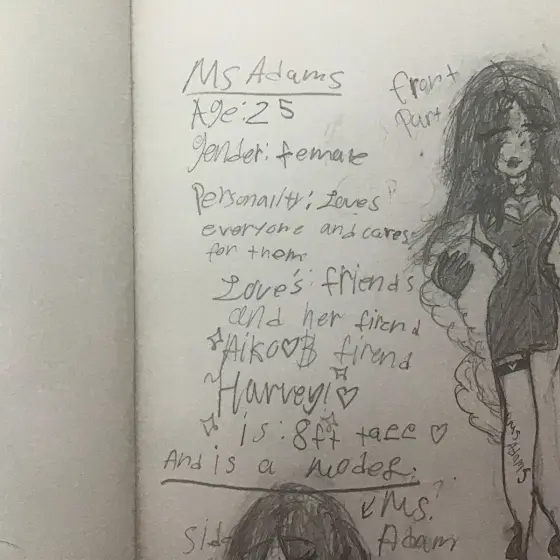 Ms Adams
Age: 25
gender: female
Personality: Loves
everyone and cares
for them
Love's: friends
and her firend
Aiko♡B firend
~Harvey!♡
is: 8ft tall ♡
And is a model.
front
part
Ms Adams
↙Ms.
Adam
Side